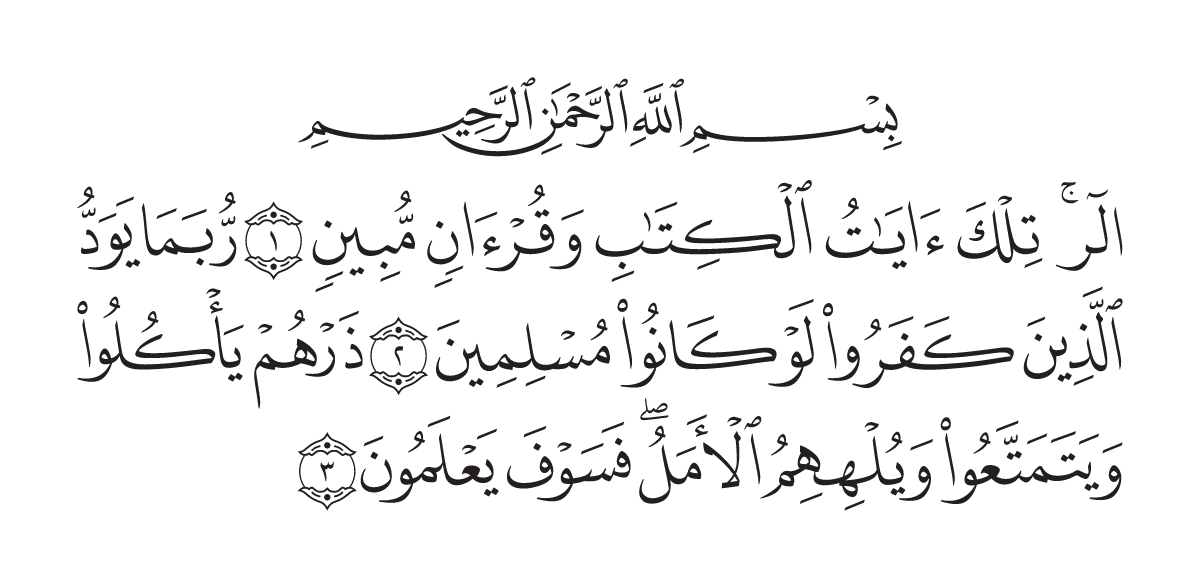 بِسْمِ ٱللَّهِ ٱلرَّحْمَٰنِ ٱلرَّحِيمِ
الٓر ۚ تِلْكَ ءَايَٰتُ ٱلْكِتَٰبِ وَقُرْءَانٍ مُّبِينٍ ١ رُّبَمَا يَوَدُّ
ٱلَّذِينَ كَفَرُوا۟ لَوْ كَانُوا۟ مُسْلِمِينَ ٢ ذَرْهُمْ يَأْكُلُوا۟
وَيَتَمَتَّعُوا۟ وَيُلْهِهِمُ ٱلْأَمَلُ ۖ فَسَوْفَ يَعْلَمُونَ ٣